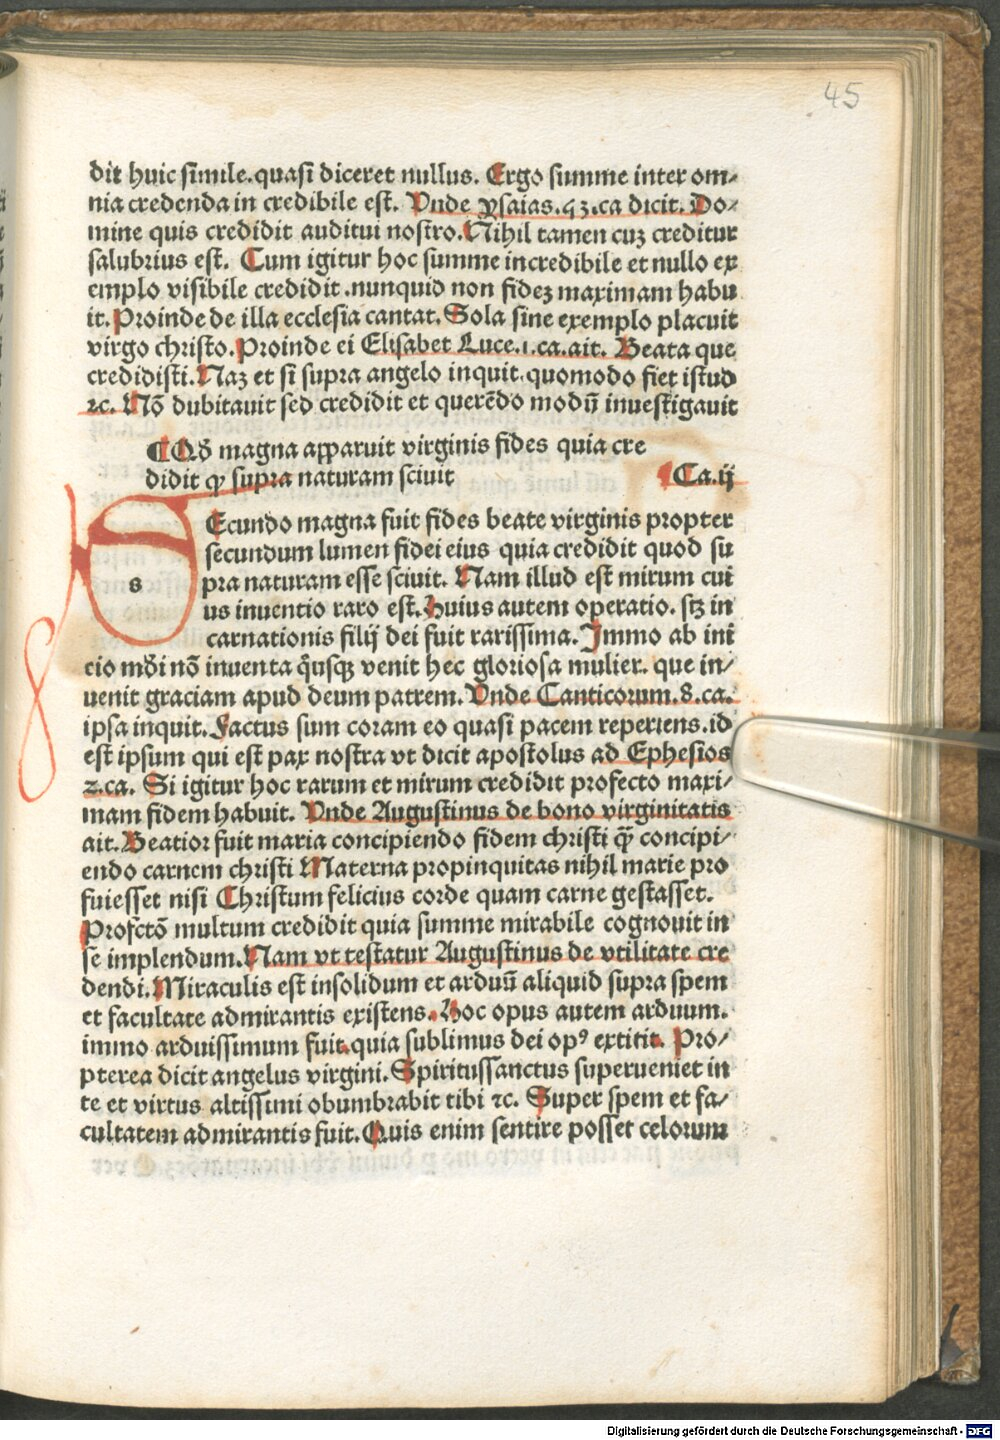 45
dit huic simile.quasi diceret nullus. Ergo summe inter om⸗
nia credenda in credibile est. Vnde ysaias.53.ca dicit. Do⸗
mine quis credidit auditui nostro.Nihil tamen cuz creditur
salubrius est. Cum igitur hoc summe incredibile et nullo ex
emplo visibile credidit .nunquid non fidez maximam habu
it.Proinde de illa ecclesia cantat.Sola sine exemplo placuit
virgo christo.Proinde ei Elisabet Luce.1.ca.ait. Beata que
credidisti.Naz et si supra angelo inquit.quomodo fiet istud
⁊c. Nō dubitauit sed credidit et querēdo modū inuestigauit
¶ Qđ magna apparuit virginis fides quia cre
didit ꝙ supra naturam sciuit
¶ Ca.ij
s
Ecundo magna fuit fides beate virginis propter
secundum lumen fidei eius quia credidit quod su
pra naturam esse sciuit. Nam illud est mirum cui
us inuentio raro est.Huius autem operatio. stz in
carnationis filij dei fuit rarissima.Immo ab ini
cio mūdi nō inuenta qͥusqz venit hec gloriosa mulier. que in⸗
uenit graciam apud deum patrem. Vnde Canticorum.8.ca.
ipsa inquit.Factus sum coram eo quasi pacem reperiens.id
est ipsum qui est pax nostra vt dicit apostolus ad Ephesios
2.ca. Si igitur hoc rarum et mirum credidit profecto maxi⸗
mam fidem habuit. Vnde Augustinus de bono virginitatis
ait.Beatior fuit maria concipiendo fidem christi q̄ȝ concipi⸗
endo carnem christi Materna propinquitas nihil marie pro
fuiesset nisi Christum felicius corde quam carne gestasset.
Profctō multum credidit quia summe mirabile cognouit in
se implendum.Nam vt testatur Augustinus de vtilitate cre
dendi.Miraculis est insolidum et arduū aliquid supra spem
et facultate admirantis existens. Hoc opus autem arduum.
immo arduissimum fuit.quia sublimus dei opꝰ extitit. Pro⸗
pterea dicit angelus virgini.Spiritussanctus superueniet in
te et virtus altissimi obumbrabit tibi ⁊c. Super spem et fa⸗
cultatem admirantis fuit.Quis enim sentire posset celorum
Digitalisierung gefördert durch die Deutsche Forschungsgemeinschaft - DFG